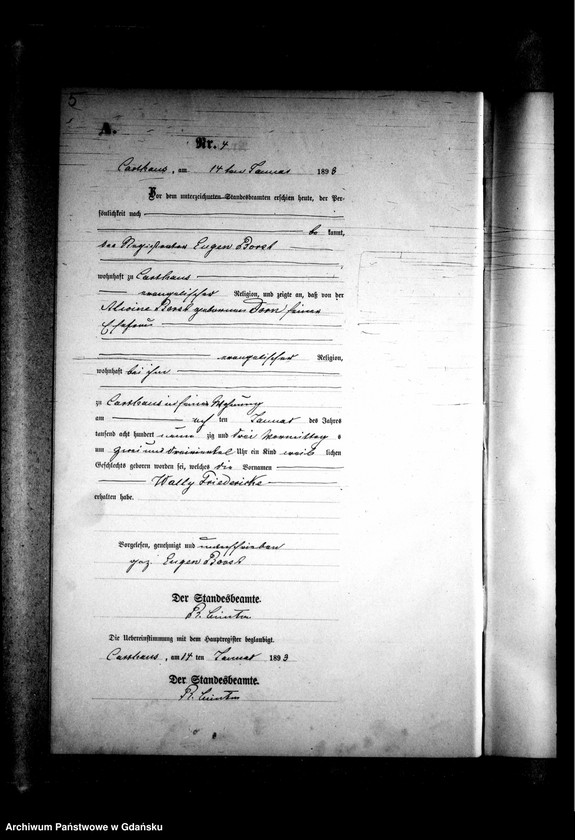 5
A.
Nr. 4
Carthaus, am 14 ten Januar 1893
Vor dem unterzeichneten Standesbeamten erschien heute, der Per-
sönlichkeit nach
be kannt,
der Eugen Borst
wohnhaft zu Carthaus
evangelischer Religion, und zeigte an, daß von der
Alwine Borst geborenen Dorn seiner
Ehefrau
evangelischer Religion,
wohnhaft bei ihm
zu Carthaus in seiner Wohnung
am ten Januar des Jahres
tausend acht hundert neun zig und drei Vormittags
um zwei und dreiviertel Uhr ein Kind weib lichen
Geschlechts geboren worden sei, welches die Vornamen
Wally Friedericke
erhalten habe.
Vorgelesen, genehmigt und unterschrieben
gez. Eugen Borst
Der Standesbeamte.
Die Uebereinstimmung mit dem Hauptregister beglaubigt.
Carthaus, am 14 ten Januar 1893
Der Standesbeamte.
Archiwum Państwowe w Gdańsku